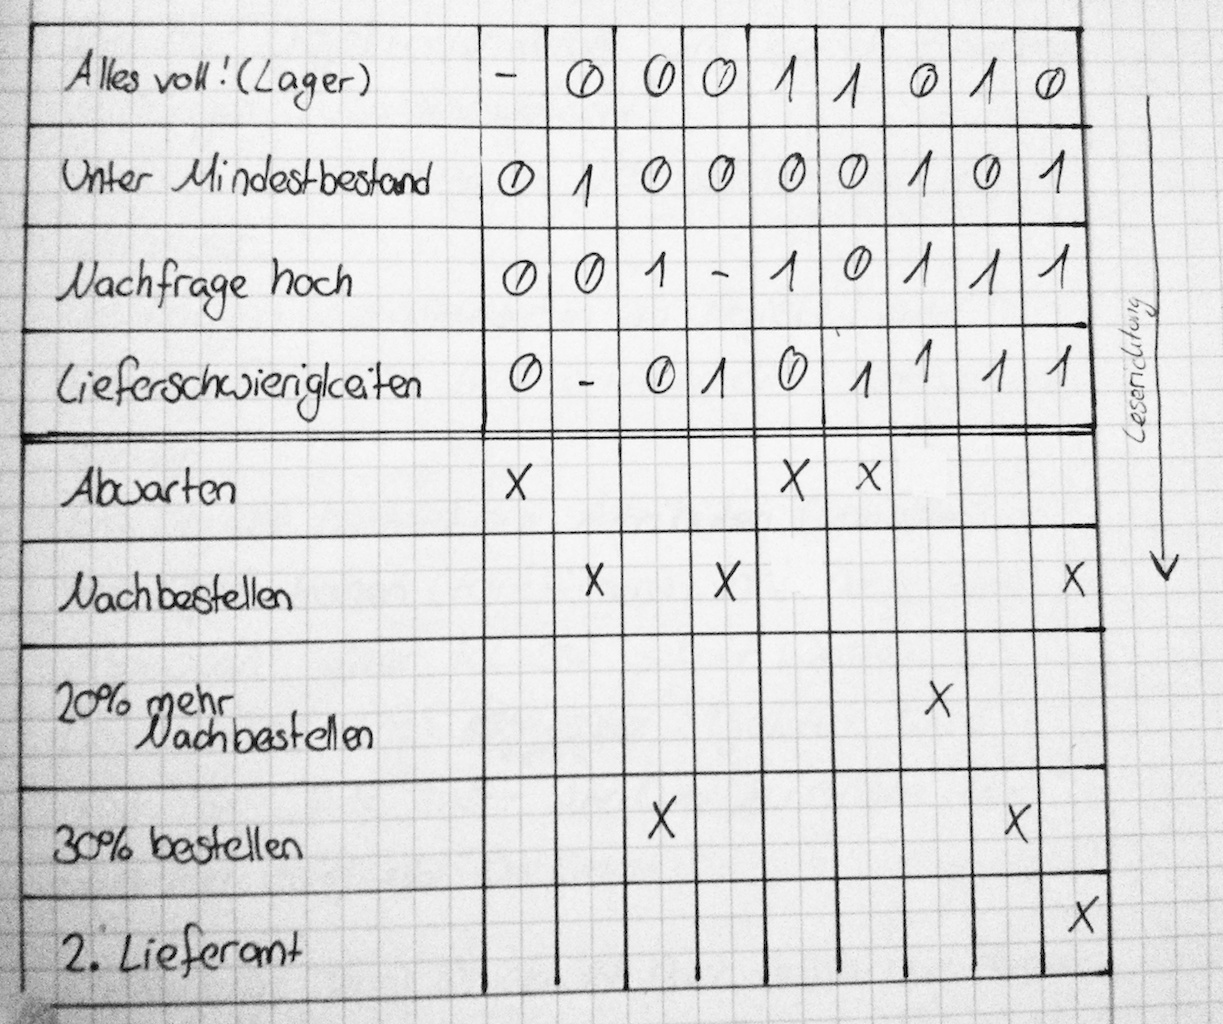 Alles voll! (Lager) - 0 0 0 1 1 0 1 0
Unter Mindestbestand 0 1 0 0 0 0 1 0 1
Nachfrage hoch 0 0 1 - 1 0 1 1 1
Lieferschwierigkeiten 0 - 0 1 0 1 1 1 1
Abwarten X X X
Nachbestellen X X X
20% mehr
Nachbestellen X
30% bestellen X X
2. Lieferamt X
Leserichtung